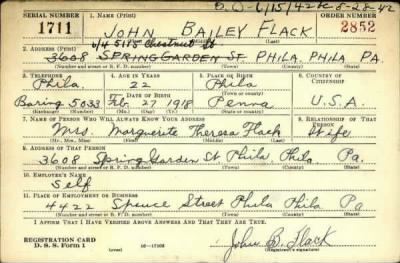 B.O-6/15/42 8-28-42
SERIAL NUMBER 1. NAME (Print) ORDER NUMBER
1711 JOHN BAILEY FLACK 2852
(First) (Middle) (Last)
5115 Chestnut St
2. ADDRESS (Print)
3608 SPRING GARDEN ST. PHILA. PHILA PA.
(Number and street or R. F. D. number) (Town) (County) (State)
3. TELEPHONE 4. AGE IN YEARS 5. PLACE OF BIRTH 6. COUNTRY OF CITIZENSHIP
Phila. 22 Phila
DATE OF BIRTH (Town or county)
Baring 5033 Feb 27 1918 Penna U.S.A.
(Exchange) (Number) (Mo.) (Day) (Yr.) (State or country)
7. NAME OF PERSON WHO WILL ALWAYS KNOW YOUR ADDRESS 8. RELATIONSHIP OF THAT PERSON
Mrs. Marguerite Theresa Flack Wife
(Mr., Mrs., Miss) (First) (Middle) (Last)
9. ADDRESS OF THAT PERSON
3608 Spring Garden St Phila, Phila Pa.
(Number and street or R. F. D. number) (Town) (County) (State)
10. EMPLOYER'S NAME
Self
11. PLACE OF EMPLOYMENT OR BUSINESS
4422 Spruce Street Phila Phila Pa
(Number and street or R. F. D. number) (Town) (County) (State)
I AFFIRM THAT I HAVE VERIFIED ABOVE ANSWERS AND THAT THEY ARE TRUE.
REGISTRATION CARD
D. S. S. Form 1 (over) 16-17105 John B. Flack
(Registrant's signature)